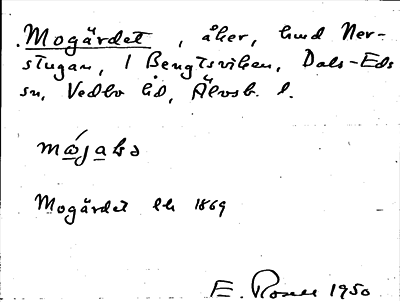 Mogärdet, åker, hmd Ner-
stugan, 1 Bengtsviken, Dals-Eds
sn, Vedbo hd, Älvsb. l.
Mogärdet lh 1869
E. Rosell 1950